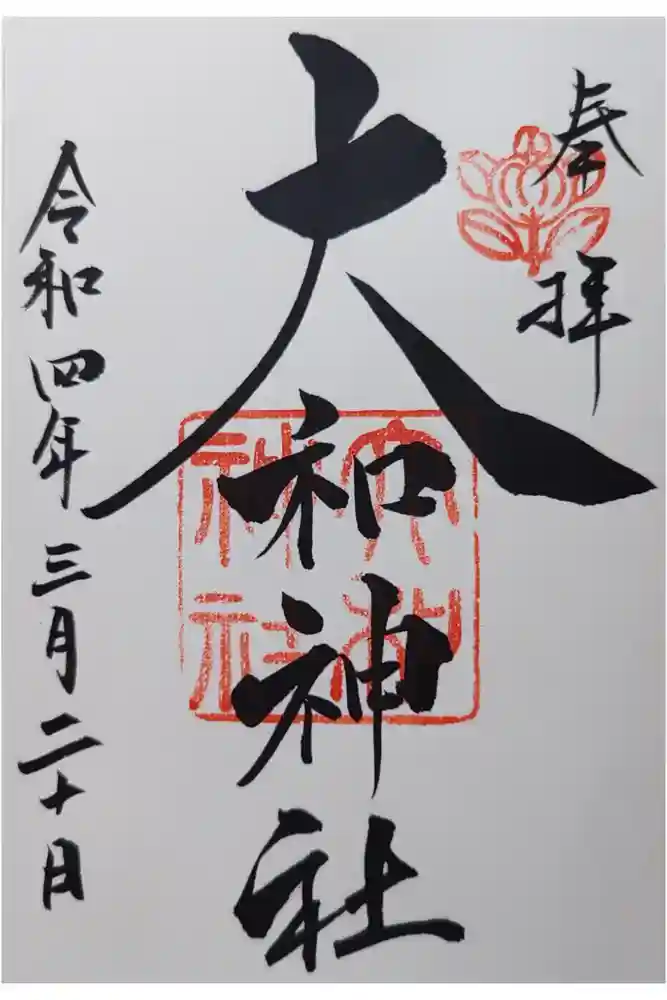 奉拝
大和神社
大和
神社
令和四年三月二十日